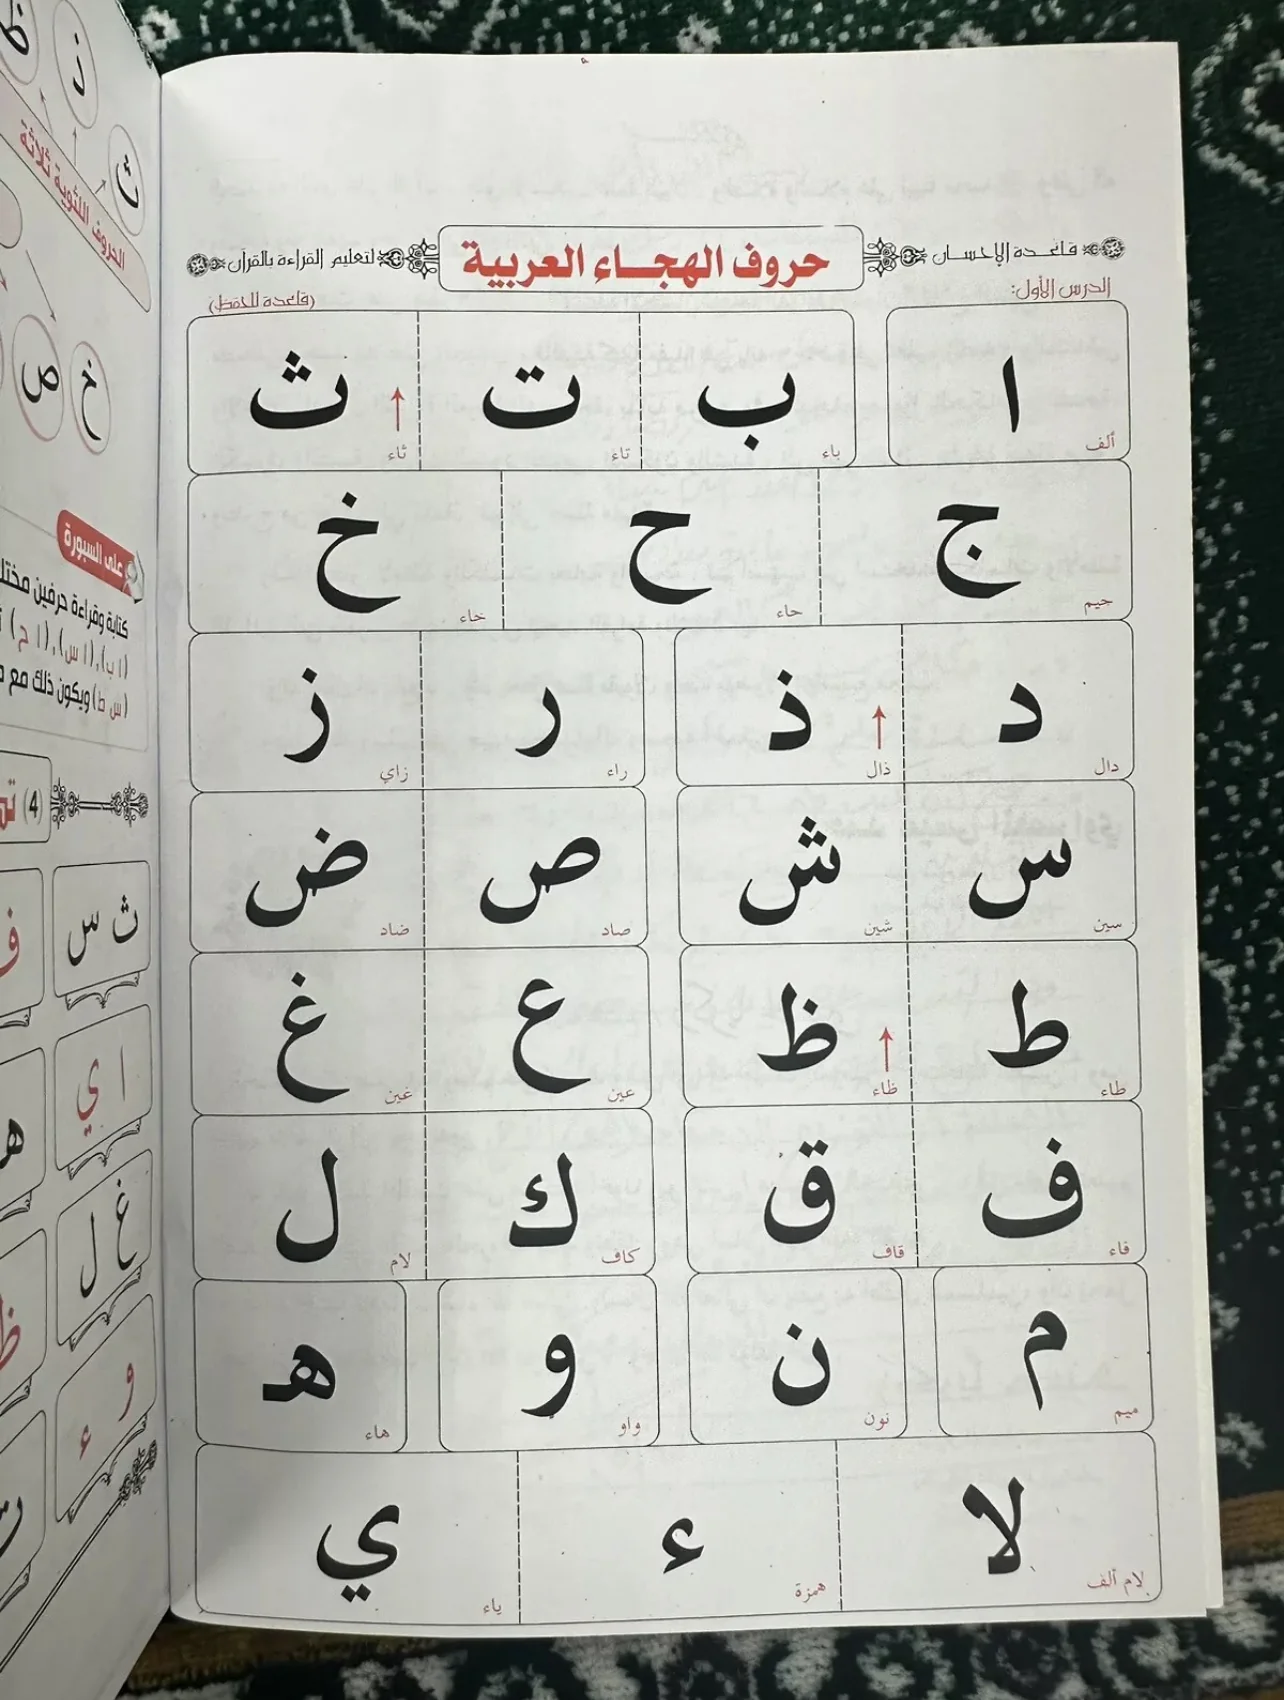 قاعدة الإحسان
حروف الهجاء العربية
لتعليم القراءة بالقرآن
الدرس الأول:
(قاعدة للحفظ)
ا ب ت ث
ألف باء تاء ثاء
ج ح خ
جيم حاء خاء
د ذ ر ز
دال ذال راء زاي
س ش ص ض
سين شين صاد ضاد
ط ظ ع غ
طاء ظاء عين غين
ف ق ك ل
فاء قاف كاف لام
م ن و هـ
ميم نون واو هاء
لا ء ي
لام ألف همزة ياء
ذ
ث
الحروف اللثوية ثلاثة
خ ص
على السبورة
كتابة وقراءة حرفين
(ا ب)، (ا س)، (ا ح)
(س ط) ويكون ذلك مع
(4)
ث س
ا ي
غ ل
و ء